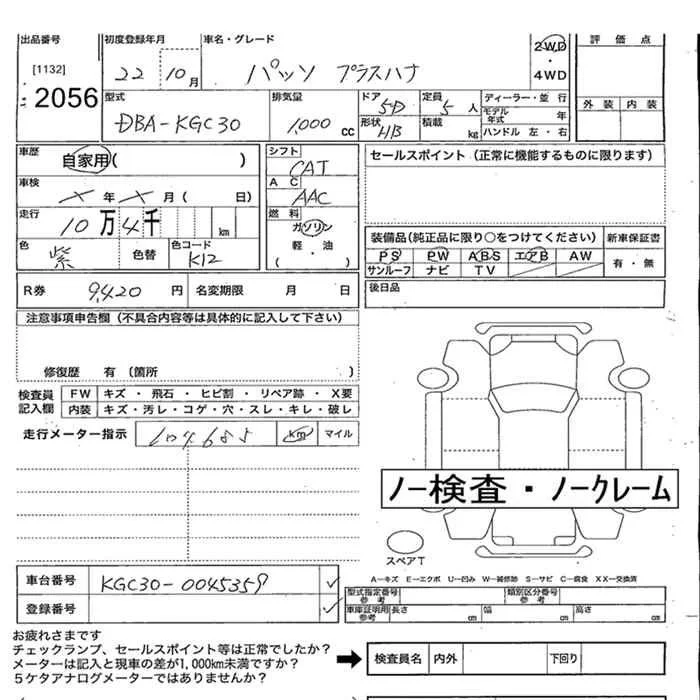 出品番号 初度登録年月 車名・グレード 2WD 評価点
[1132] 22 10月 パッソ プラスハナ ・
2056 4WD
型式 排気量 ドア 5D 定員 5人 ディーラー・並行 外装 内装
DBA-KGC30 1,000cc 形状 HB 積載 kg モデル年式 年
ハンドル 左・右
車歴 自家用( ) シフト CAT セールスポイント(正常に機能するものに限ります)
車検 メ年メ月( 日) AC AAC
走行 10万4千 km 燃料 ガソリン
軽・油
( ・ )
色 紫 色替 色コード K12
装備品(純正品に限り○をつけてください) 新車保証書
PS PW ABS エアB AW 有・無
サンルーフ ナビ TV
R券 9,420円 名変期限 月 日 後日品
注意事項申告欄(不具合内容等は具体的に記入して下さい)
修復歴 有(箇所 )
検査員記入欄 FW キズ・飛石・ヒビ割・リペア跡・X要
内装 キズ・汚レ・コゲ・穴・スレ・キレ・破レ
走行メーター指示 104685 km マイル
ノー検査・ノークレーム
スペアT
A-キズ E-エクボ U-凹み W-補修跡 S-サビ C-腐食 XX-交換済
車台番号 KGC30-0045359 ✓
型式指定番号 参考 類別区分番号 参考
登録番号 ✓
車庫証明用 参考 長さ cm 幅 cm 高さ cm
お疲れさまです
チェックランプ、セールスポイント等は正常でしたか?
メーターは記入と現車の差が1,000km未満ですか?
5ケタアナログメーターではありませんか?
➡ 検査員名 内外 下回り